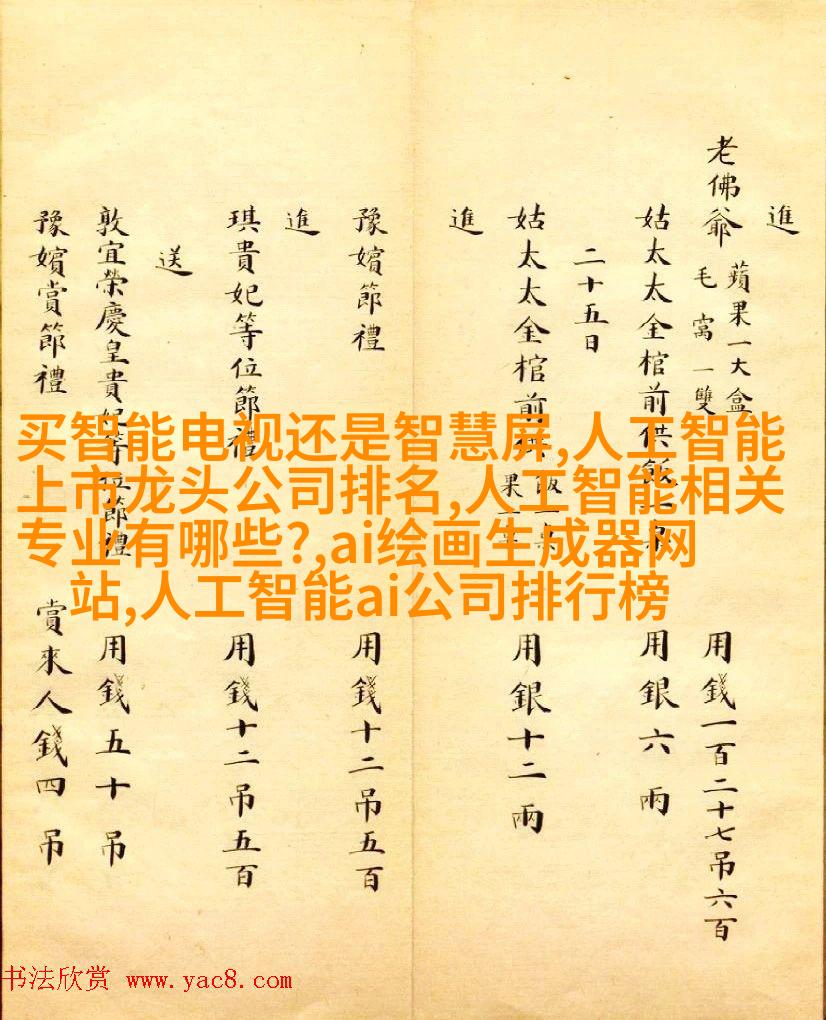 進
老佛爺 蘋果一大盒 毛窩一雙 用錢一百二十七吊六百
姑太太金棺前供飯一桌 用銀六兩
二十五日
姑太太金棺前供 飯一桌 果一桌 用銀十二兩
進
豫嬪節禮 用錢十二吊五百
進
琪貴妃等位節禮 用錢十二吊五百
送
敦宜榮慶皇貴妃等位節禮 用錢五十吊
豫嬪賞節禮 賞來人錢四吊
买智能电视还是智慧屏,人工智能
上市龙头公司排名,人工智能相关
专业有哪些?,ai绘画生成器网
站,人工智能ai公司排行榜
书法欣赏 www.yac8.com